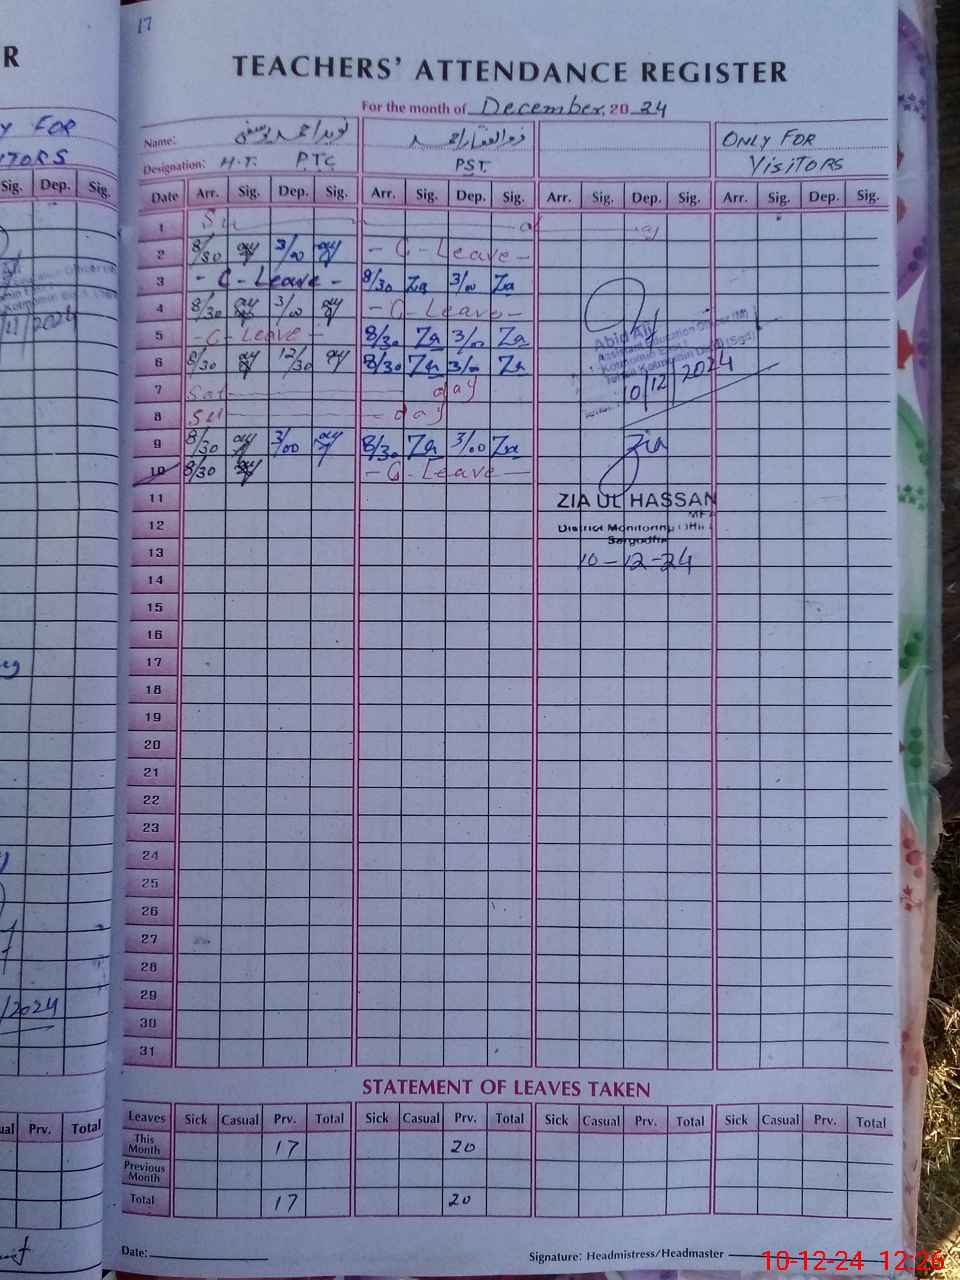 17
TEACHERS' ATTENDANCE REGISTER
For the month of December, 20 24
Name: نوید احمد یوسفی ذوالفقار احمد ONLY FOR
Designation: H.T. P.T.C PST. VISITORS
Date Arr. Sig. Dep. Sig. Arr. Sig. Dep. Sig. Arr. Sig. Dep. Sig. Arr. Sig. Dep. Sig.
1 Su
2 8/30 3/00 - C - Leave -
3 - C - Leave - 8/30 Za 3/00 Za
4 8/30 3/00 - C - Leave -
5 - C - Leave - 8/30 Za 3/00 Za
6 8/30 12/30 8/30 Za 3/00 Za
7 Sat day
8 Su - day
9 8/30 3/00 8/30 Za 3/00 Za
10 8/30 - C - Leave -
Abid Ali
Assistant Education Officer (M)
10/12/2024
Zia
11
ZIA UL HASSAN
12
District Monitoring
13
Sargodha
10-12-24
14
15
16
17
18
19
20
21
22
23
24
25
26
27
28
29
30
31
STATEMENT OF LEAVES TAKEN
Leaves Sick Casual Prv. Total Sick Casual Prv. Total Sick Casual Prv. Total Sick Casual Prv. Total
This Month 17 20
Previous Month
Total 17 20
Date: Signature: Headmistress/Headmaster
10-12-24 12:26
R
FOR
Sig. Dep. Sig.
/2024
Prv. Total